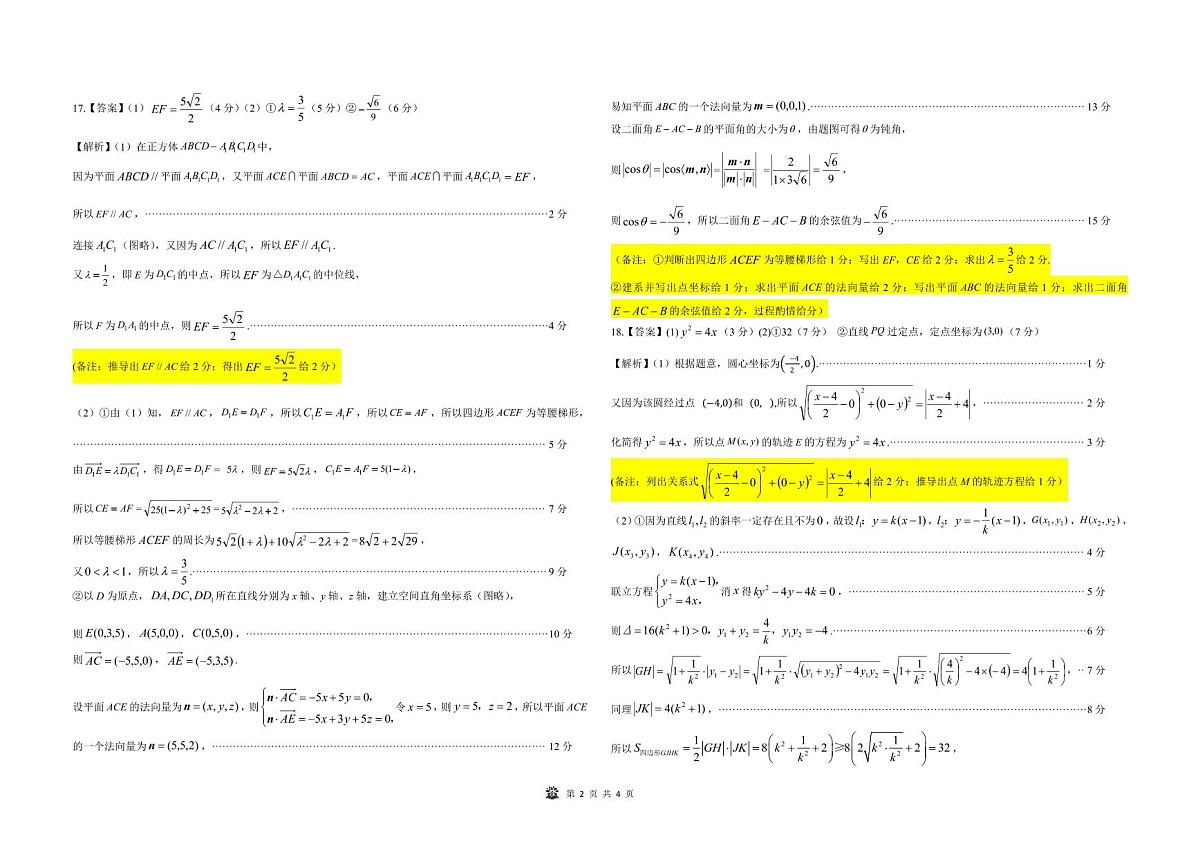 17.【答案】(1) EF = 5√2/2 (4 分) (2) ① λ = 3/5 (5 分) ② −√6/9 (6 分)
【解析】(1) 在正方体 ABCD − A₁B₁C₁D₁ 中,
因为平面 ABCD // 平面 A₁B₁C₁D₁, 又平面 ACE ∩ 平面 ABCD = AC, 平面 ACE ∩ 平面 A₁B₁C₁D₁ = EF,
所以 EF // AC, ……2 分
连接 A₁C₁ (图略), 又因为 AC // A₁C₁, 所以 EF // A₁C₁.
又 λ = 1/2, 即 E 为 D₁C₁ 的中点, 所以 EF 为 △D₁A₁C₁ 的中位线,
所以 F 为 D₁A₁ 的中点, 则 EF = 5√2/2. ……4 分
(备注: 推导出 EF // AC 给 2 分; 得出 EF = 5√2/2 给 2 分)
(2) ①由 (1) 知, EF // AC, D₁E = D₁F, 所以 C₁E = A₁F, 所以 CE = AF, 所以四边形 ACEF 为等腰梯形,
……5 分
由 D₁E→ = λD₁C₁→, 得 D₁E = D₁F = 5λ, 则 EF = 5√2λ, C₁E = A₁F = 5(1−λ),
所以 CE = AF = √(25(1−λ)² + 25) = 5√(λ² − 2λ + 2), ……7 分
所以等腰梯形 ACEF 的周长为 5√2(1+λ) + 10√(λ² − 2λ + 2) = 8√2 + 2√29,
又 0 < λ < 1, 所以 λ = 3/5. ……9 分
②以 D 为原点, DA, DC, DD₁ 所在直线分别为 x 轴、y 轴、z 轴, 建立空间直角坐标系 (图略),
则 E(0,3,5), A(5,0,0), C(0,5,0), ……10 分
则 AC→ = (−5,5,0), AE→ = (−5,3,5).
设平面 ACE 的法向量为 n = (x, y, z), 则 { n·AC→ = −5x + 5y = 0, n·AE→ = −5x + 3y + 5z = 0, 令 x = 5, 则 y = 5, z = 2, 所以平面 ACE
的一个法向量为 n = (5,5,2), ……12 分
易知平面 ABC 的一个法向量为 m = (0,0,1). ……13 分
设二面角 E − AC − B 的平面角的大小为 θ, 由题图可得 θ 为钝角,
则 |cosθ| = |cos⟨m, n⟩| = |m·n / |m|·|n|| = |2 / 1×3√6| = √6/9,
则 cosθ = −√6/9, 所以二面角 E − AC − B 的余弦值为 −√6/9. ……15 分
(备注: ①判断出四边形 ACEF 为等腰梯形给 1 分; 写出 EF, CE 给 2 分; 求出 λ = 3/5 给 2 分.
②建系并写出点坐标给 1 分; 求出平面 ACE 的法向量给 2 分; 写出平面 ABC 的法向量给 1 分; 求出二面角
E − AC − B 的余弦值给 2 分, 过程酌情给分)
18.【答案】(1) y² = 4x (3 分) (2) ①32 (7 分) ②直线 PQ 过定点, 定点坐标为 (3,0) (7 分)
【解析】(1) 根据题意, 圆心坐标为 (−4/2, 0). ……1 分
又因为该圆经过点 (−4,0) 和 (0, ), 所以 √(((x−4)/2 − 0)² + (0−y)²) = |(x−4)/2 + 4|, ……2 分
化简得 y² = 4x, 所以点 M(x, y) 的轨迹 E 的方程为 y² = 4x. ……3 分
(备注: 列出关系式 √(((x−4)/2 − 0)² + (0−y)²) = |(x−4)/2 + 4| 给 2 分; 推导出点 M 的轨迹方程给 1 分)
(2) ①因为直线 l₁, l₂ 的斜率一定存在且不为 0, 故设 l₁: y = k(x−1), l₂: y = −1/k (x−1), G(x₁, y₁), H(x₂, y₂),
J(x₃, y₃), K(x₄, y₄). ……4 分
联立方程 { y = k(x−1), y² = 4x, 消 x 得 ky² − 4y − 4k = 0, ……5 分
则 Δ = 16(k² + 1) > 0, y₁ + y₂ = 4/k, y₁y₂ = −4. ……6 分
所以 |GH| = √(1 + 1/k²) · |y₁ − y₂| = √(1 + 1/k²) · √((y₁ + y₂)² − 4y₁y₂) = √(1 + 1/k²) · √((4/k)² − 4×(−4)) = 4(1 + 1/k²), ‥ 7 分
同理 |JK| = 4(k² + 1), ……8 分
所以 S四边形GJHK = 1/2 |GH|·|JK| = 8(k² + 1/k² + 2) ≥ 8(2√(k²·1/k²) + 2) = 32,
第 2 页 共 4 页